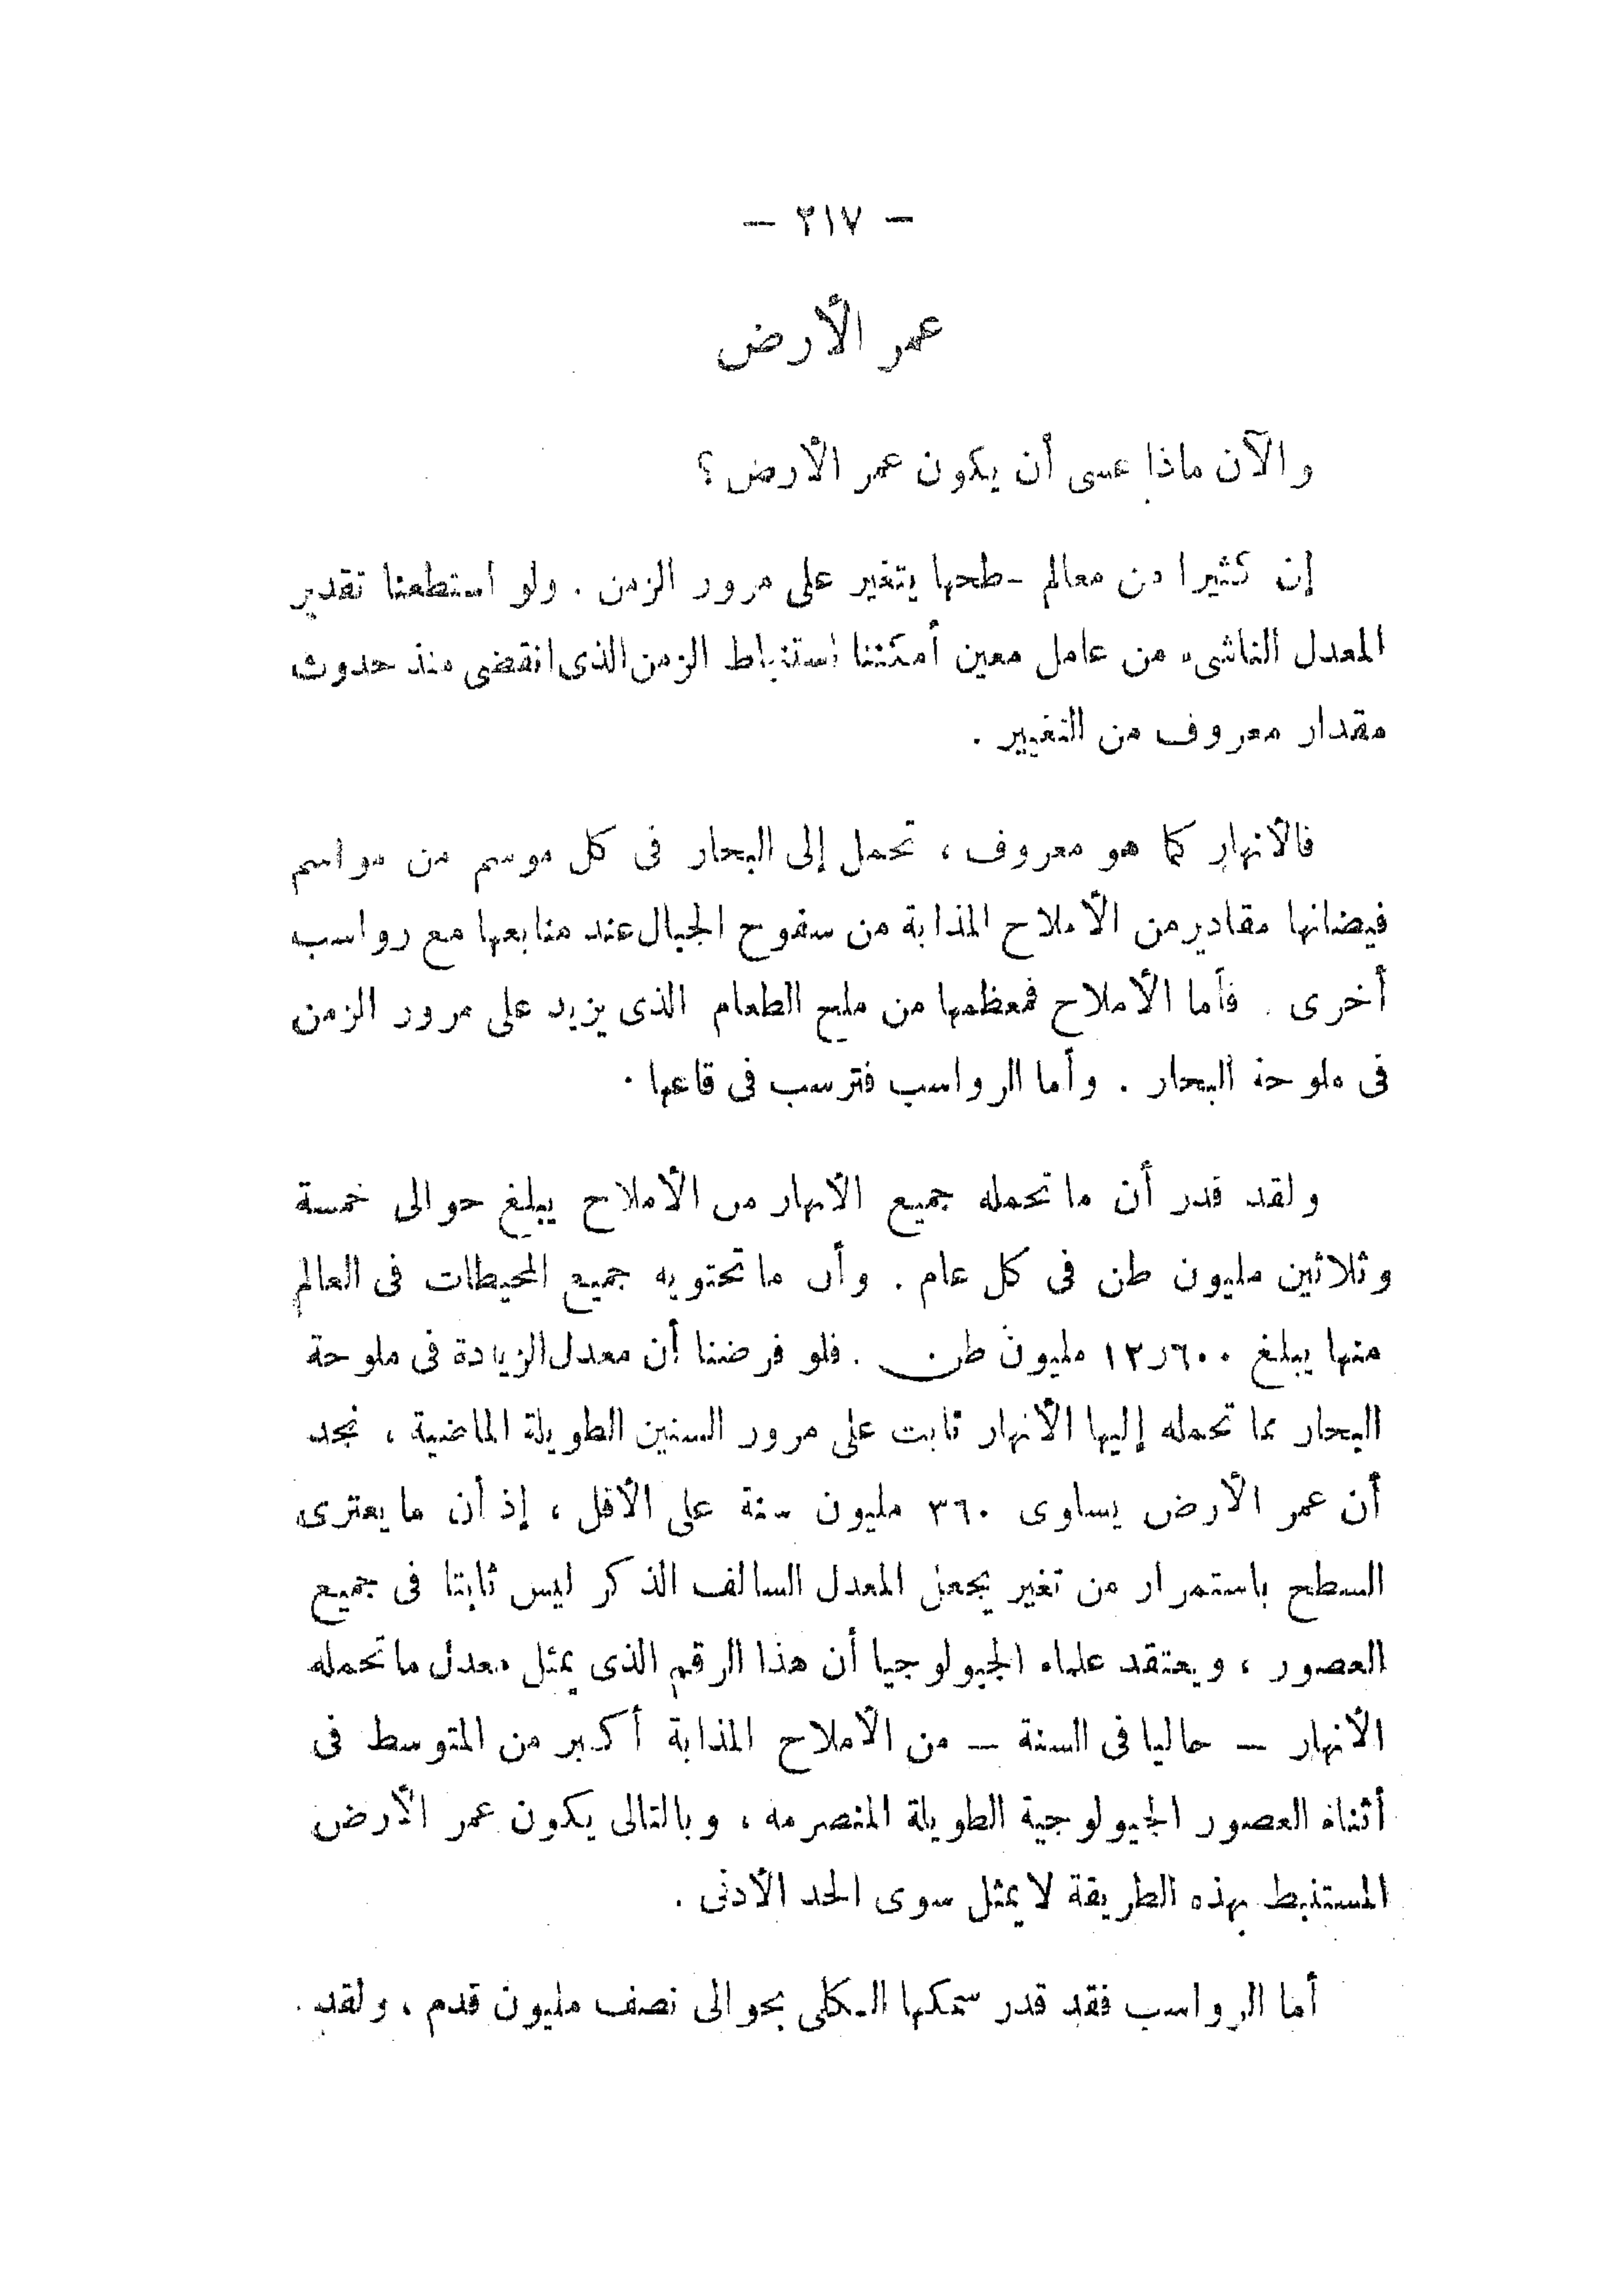 — ٢١٧ —
عمر الأرض
والآن ماذا عسى أن يكون عمر الأرض؟
إن كثيرا من معالم سطحها يتغير على مرور الزمن . ولو استطعنا تقدير
المعدل الناشىء من عامل معين أمكننا استنباط الزمن الذى انقضى منذ حدوث
مقدار معروف من التغيير .
فالأنهار كما هو معروف ، تحمل إلى البحار فى كل موسم من مواسم
فيضانها مقادير من الأملاح المذابة من سفوح الجبال عند منابعها مع رواسب
أخرى . فأما الأملاح فمعظمها من ملح الطعام الذى يزيد على مرور الزمن
فى ملوحة البحار . وأما الرواسب فترسب فى قاعها .
ولقد قدر أن ما تحمله جميع الأنهار من الأملاح يبلغ حوالى خمسة
وثلاثين مليون طن فى كل عام . وأن ما تحتويه جميع المحيطات فى العالم
منها يبلغ ١٢٫٦٠٠ مليون طن . فلو فرضنا أن معدل الزيادة فى ملوحة
البحار بما تحمله إليها الأنهار ثابت على مرور السنين الطويلة الماضية ، نجد
أن عمر الأرض يساوى ٣٦٠ مليون سنة على الأقل ، إذ أن ما يعترى
السطح باستمرار من تغير يجعل المعدل السالف الذكر ليس ثابتا فى جميع
العصور ، ويعتقد علماء الجيولوجيا أن هذا الرقم الذى يمثل معدل ما تحمله
الأنهار — حاليا فى السنة — من الأملاح المذابة أكبر من المتوسط فى
أثناء العصور الجيولوجية الطويلة المنصرمه ، وبالتالى يكون عمر الأرض
المستنبط بهذه الطريقة لا يمثل سوى الحد الأدنى .
أما الرواسب فقد قدر سمكها الكلى بحوالى نصف مليون قدم ، ولقد